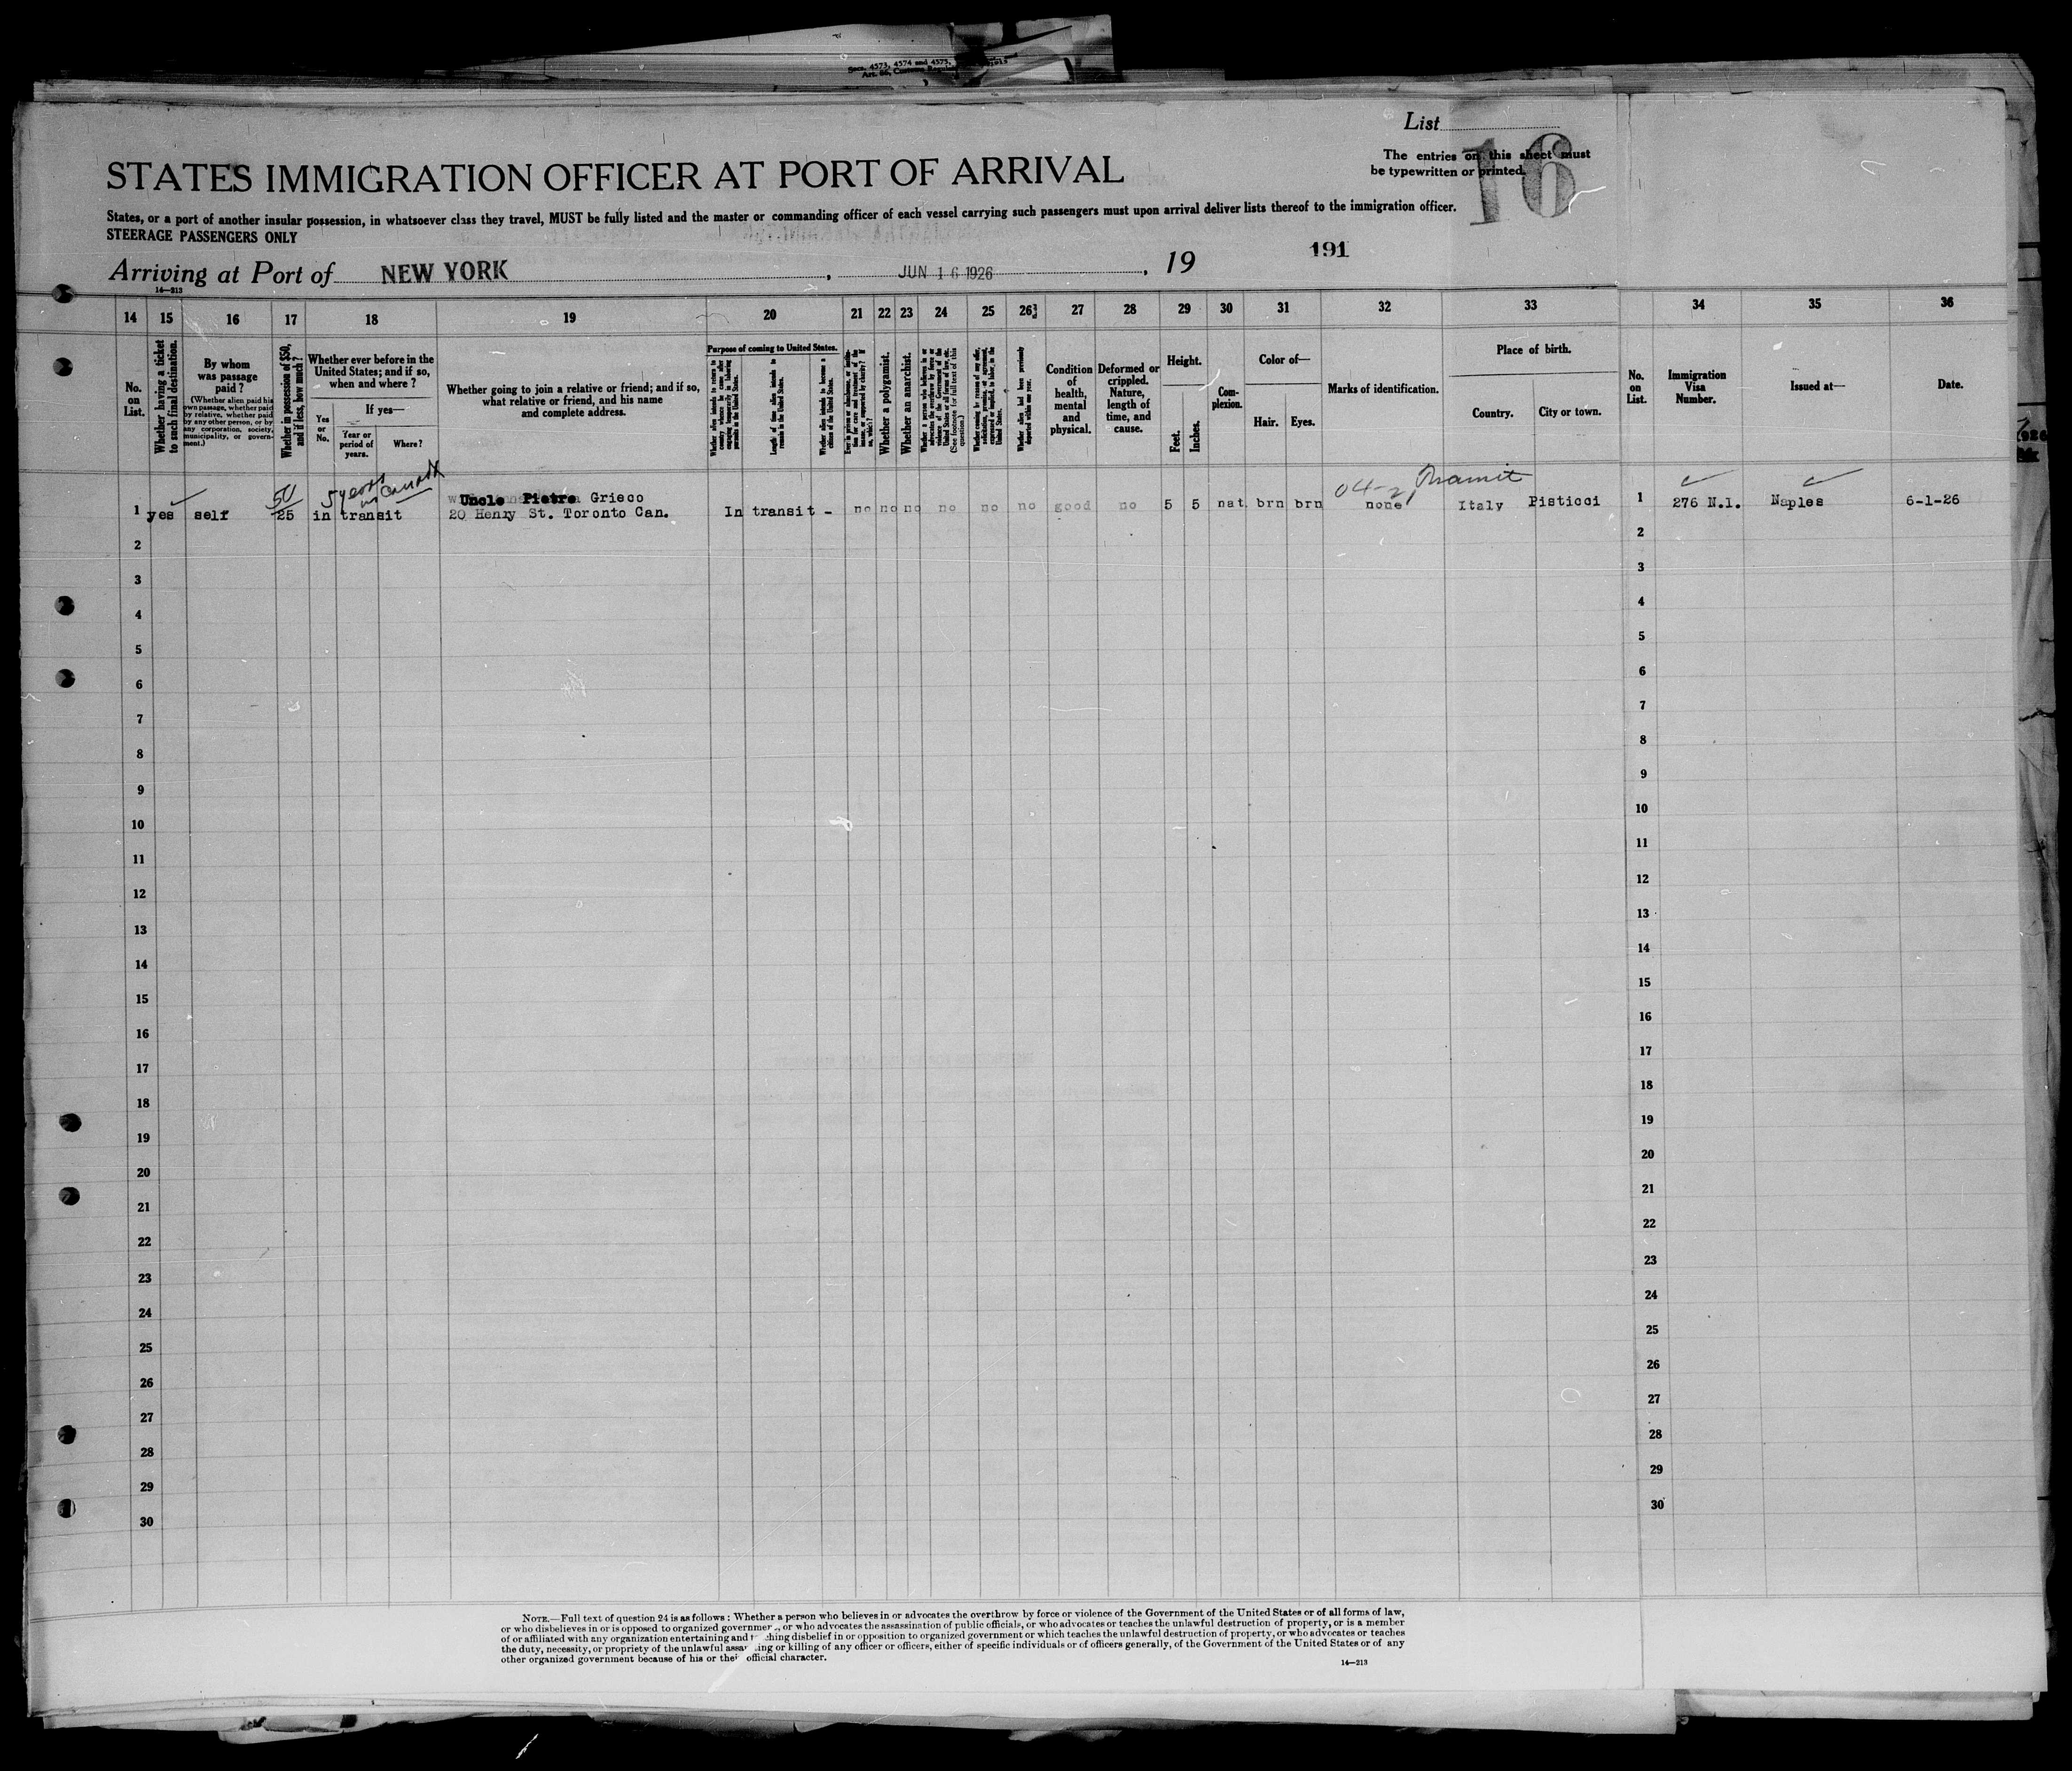 Secs. 4573, 4574 and 4575,
List
16
The entries on this sheet must
be typewritten or printed.
STATES IMMIGRATION OFFICER AT PORT OF ARRIVAL
States, or a port of another insular possession, in whatsoever class they travel, MUST be fully listed and the master or commanding officer of each vessel carrying such passengers must upon arrival deliver lists thereof to the immigration officer.
STEERAGE PASSENGERS ONLY
191
Arriving at Port of NEW YORK, JUN 16 1926, 19
14—213
14 15 16 17 18 19 20 21 22 23 24 25 26 27 28 29 30 31 32 33 34 35 36
No. on List.
Whether having a ticket to such final destination.
By whom was passage paid?
(Whether alien paid his own passage, whether paid by relative, whether paid by any other person, or by any corporation, society, municipality, or government.)
Whether in possession of $50, and if less, how much?
Whether ever before in the United States; and if so, when and where?
Yes or No.
If yes—
Year or period of years.
Where?
Whether going to join a relative or friend; and if so, what relative or friend, and his name and complete address.
Purpose of coming to United States.
Length of time alien intends to remain in the United States.
Whether alien intends to become a citizen of the United States.
Whether a polygamist.
Whether an anarchist.
Condition of health, mental and physical.
Deformed or crippled. Nature, length of time, and cause.
Height.
Feet.
Inches.
Complexion.
Color of—
Hair.
Eyes.
Marks of identification.
Place of birth.
Country.
City or town.
No. on List.
Immigration Visa Number.
Issued at—
Date.
50 5 years in Canada 04-2, Transit
Uncle Pietro Grieco
1 yes self 25 in transit 20 Henry St. Toronto Can. In transit - no no no no no no good no 5 5 nat. brn brn none Italy Pisticci 1 276 N.I. Naples 6-1-26
2 2
3 3
4 4
5 5
6 6
7 7
8 8
9 9
10 10
11 11
12 12
13 13
14 14
15 15
16 16
17 17
18 18
19 19
20 20
21 21
22 22
23 23
24 24
25 25
26 26
27 27
28 28
29 29
30 30
NOTE.—Full text of question 24 is as follows: Whether a person who believes in or advocates the overthrow by force or violence of the Government of the United States or of all forms of law,
or who disbelieves in or is opposed to organized government, or who advocates the assassination of public officials, or who advocates or teaches the unlawful destruction of property, or is a member
of or affiliated with any organization entertaining and teaching disbelief in or opposition to organized government or which teaches the unlawful destruction of property, or who advocates or teaches
the duty, necessity, or propriety of the unlawful assaulting or killing of any officer or officers, either of specific individuals or of officers generally, of the Government of the United States or of any
other organized government because of his or their official character.
14—213